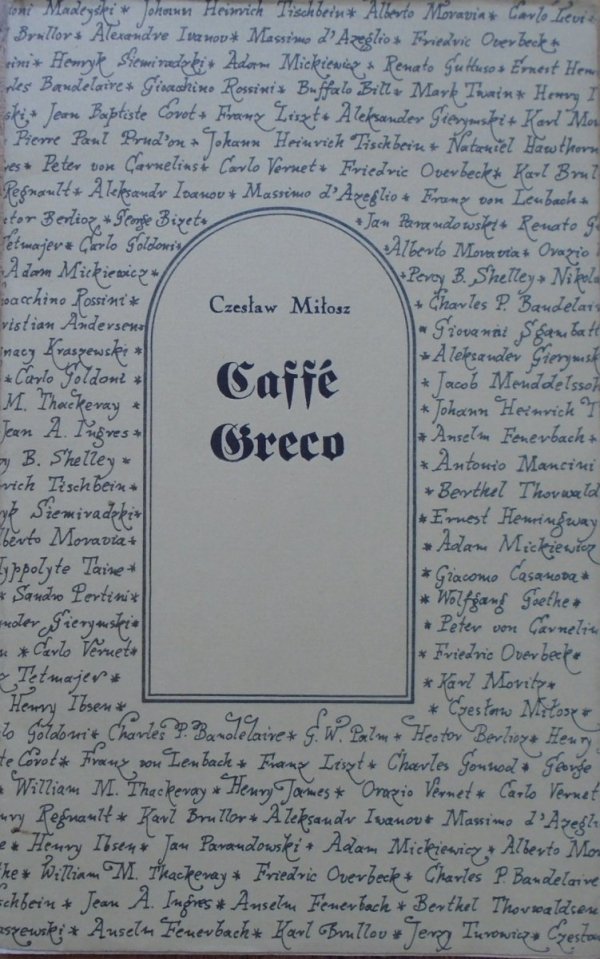 toni Madeyski * Johann Heinrich Tischbein * Alberto Moravia * Carlo Levi
l Brullor * Alexandre Ivanov * Massimo d'Azeglio * Friedric Overbeck *
eini * Henryk Siemiradzki * Adam Mickiewicz * Renato Guttuso * Ernest Hem
rles Bandelaire * Gioacchino Rossini * Buffalo Bill * Mark Twain * Henry
ski * Jean Baptiste Corot * Franz Liszt * Aleksander Gierymski * Karl Mo
Pierre Paul Prud'on * Johann Heinrich Tischbein * Nataniel Hawthorn
res * Peter von Carnelius * Carlo Vernet * Friedric Overbeck * Karl Brul
Regnault * Aleksandr Ivanov * Massimo d'Azeglio * Franz von Lenbach *
ctor Berlioz * George Bizet * * Jan Parandowski * Renato G
Tetmajer * Carlo Goldoni * * Alberto Moravia * Orazio
Adam Mickiewicz * * Percy B. Shelley * Nikol
ioacchino Rossini * * Charles P. Bandelair
ristian Andersen * * Giovanni Sgambatt
Czesław Miłosz
nacy Kraszewski * * Aleksander Gierymsk
* Carlo Goldoni * * Jacob Menddelssoh
Caffé
M. Thackeray * * Johann Heinrich T
Jean A. Ingres * * Anselm Fenerbach *
Greco
y B. Shelley * * Antonio Mancini
rich Tischbein * * Berthel Thorwald
yk Siemiradzki * * Ernest Hemingway
lberto Moravia * * Adam Mickiewicz
Hyppolyte Taine * * Giacomo Casanova *
* Sandro Pertini * * Wolfgang Goethe *
ander Gierymski * * Peter von Carneliu
* Carlo Vernet * * Friedric Overbeck *
z Tetmajer * * Karl Moritz *
Henry Ibsen * * Czesław Miłosz *
lo Goldoni * Charles P. Bandelaire * G. W. Palm * Hector Berlioz * Henry
te Corot * Franz von Lenbach * Franz Liszt * Charles Gounod * George
* William M. Thackeray * Henry James * Orazio Vernet * Carlo Vernet
nry Regnault * Karl Brullor * Aleksandr Ivanov * Massimo d'Azegli
e * Henry Ibsen * Jan Parandowski * Adam Mickiewicz * Alberto Mor
the * William M. Thackeray * Friedric Overbeck * Charles P. Bandelaire
schbein * Jean A. Ingres * Anselm Fenerbach * Berthel Thorwaldsen
aszewski * Anselm Fenerbach * Karl Brullov * Jerzy Turowicz * Czesław